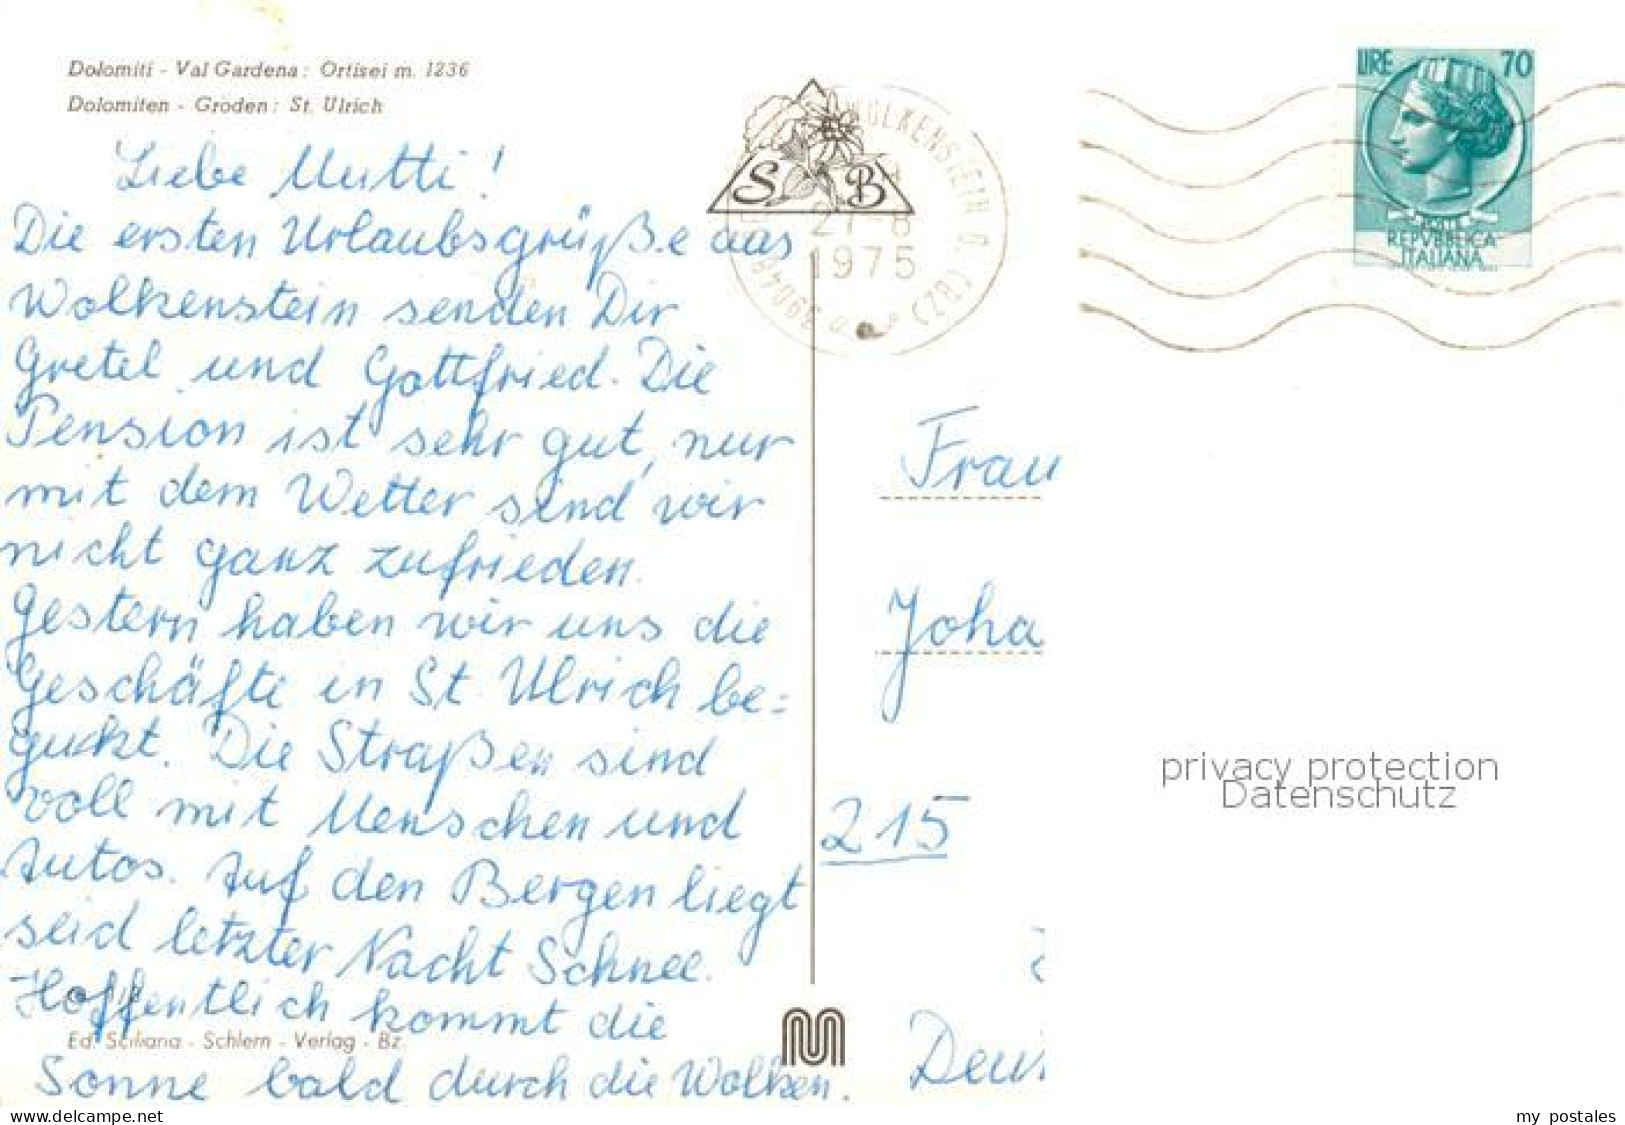 Dolomiti - Val Gardena: Ortisei m. 1236
Dolomiten - Gröden: St. Ulrich
Liebe Mutti!
Die ersten Urlaubsgrüße aus
Wolkenstein senden Dir
Gretel und Gottfried. Die
Pension ist sehr gut, nur
mit dem Wetter sind wir
nicht ganz zufrieden.
Gestern haben wir uns die
Geschäfte in St. Ulrich be=
guckt. Die Straßen sind
voll mit Menschen und
Autos. Auf den Bergen liegt
seid letzter Nacht Schnee.
Hoffentlich kommt die
Ed. Sciliana - Schlern - Verlag - Bz
Sonne bald durch die Wolken.
S B
WOLKENSTEIN G. (BZ)
27-8
1975
39048
LIRE 70
POSTE
REPVBBLICA
ITALIANA
Frau
Joha
215
Deu
privacy protection
Datenschutz
my postales
www.delcampe.net